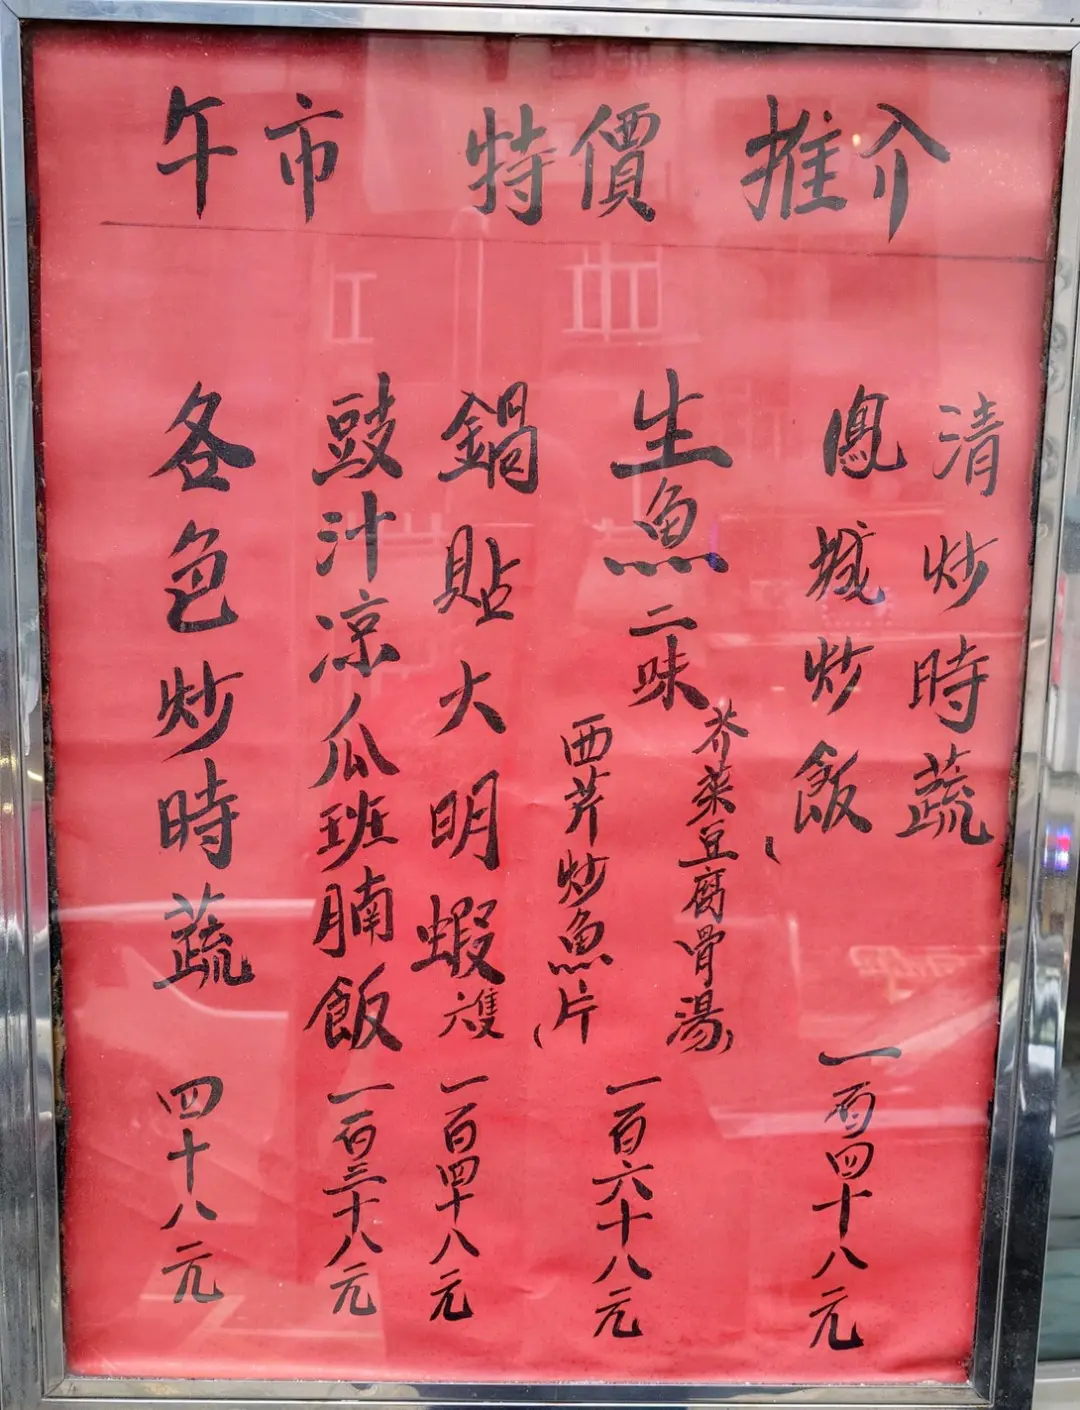 午市 特價 推介
清炒時蔬
鳳城炒飯
一百四十八元
生魚二味
芥菜豆腐骨湯)
(西芹炒魚片
一百六十八元
鍋貼大明蝦六隻
一百四十八元
豉汁凉瓜班腩飯
一百三十八元
各色炒時蔬
四十八元